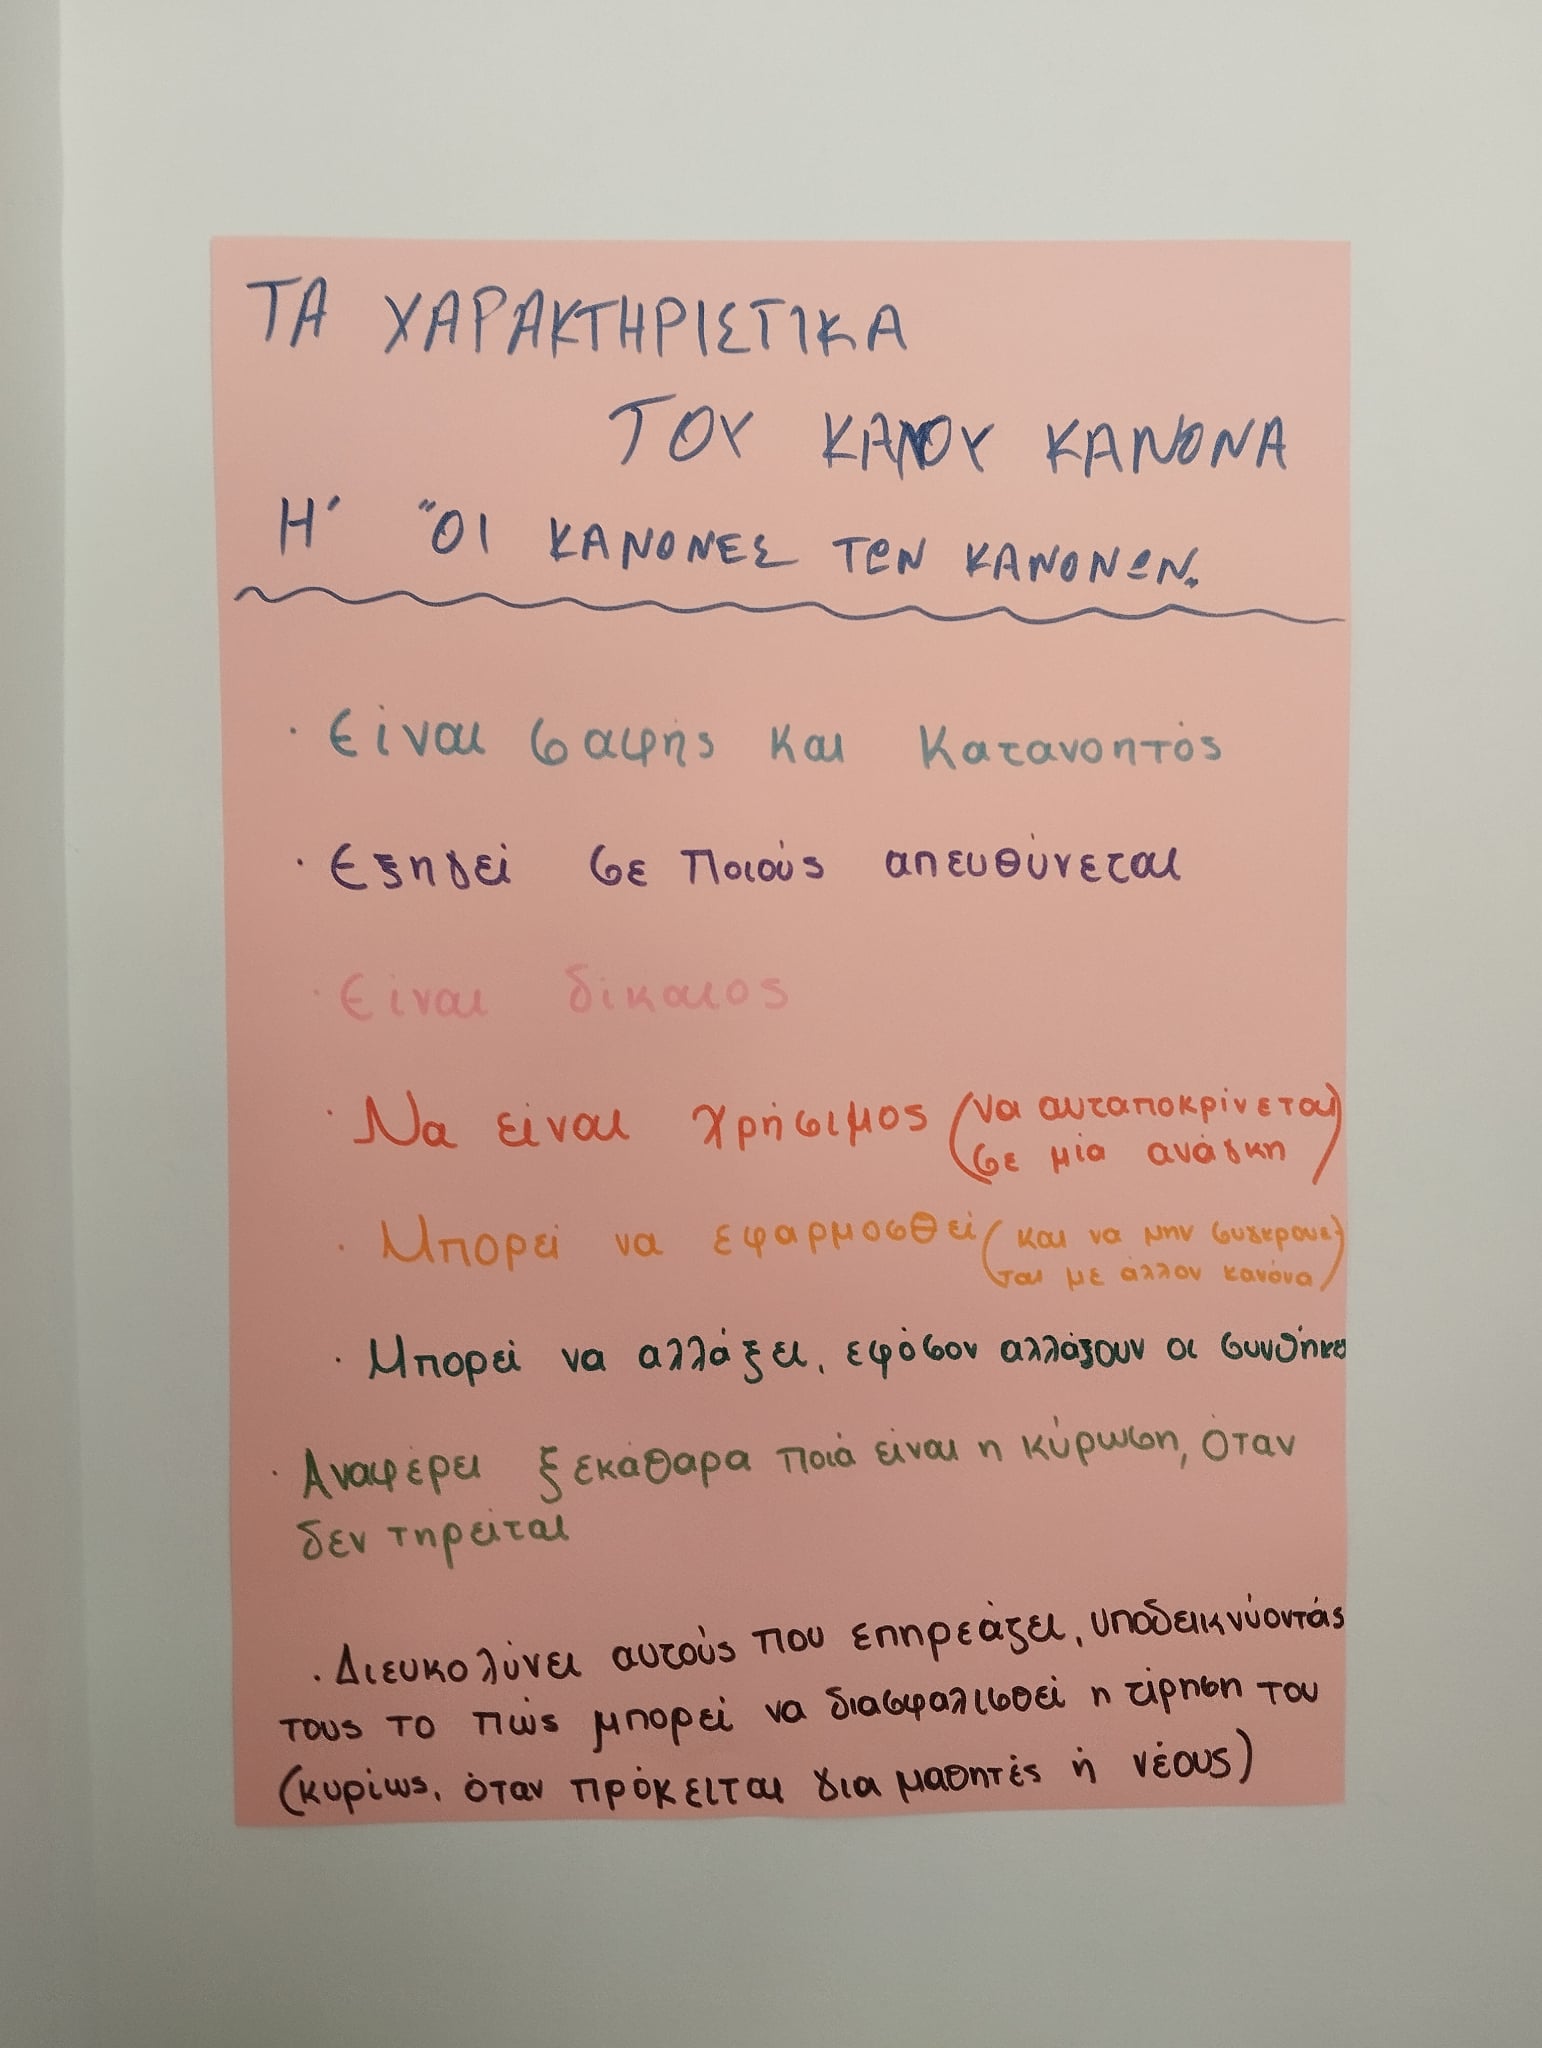 ΤΑ ΧΑΡΑΚΤΗΡΙΣΤΙΚΑ
ΤΟΥ ΚΑΛΟΥ ΚΑΝΟΝΑ
Η΄ "ΟΙ ΚΑΝΟΝΕΣ ΤΩΝ ΚΑΝΟΝΩΝ.
· Είναι σαφής και κατανοητός
· Εξηγεί σε ποιούς απευθύνεται
· Είναι δίκαιος
· Να είναι χρήσιμος (να αυταποκρίνεται
σε μία ανάγκη)
· Μπορεί να εφαρμοσθεί (και να μην συγκρουε-
ται με άλλον κανόνα)
· Μπορεί να αλλάξει, εφόσον αλλάζουν οι συνθήκες
· Αναφέρει ξεκάθαρα ποιά είναι η κύρωση, όταν
δεν τηρείται
· Διευκολύνει αυτούς που επηρεάζει, υποδεικνύοντάς
τους το πώς μπορεί να διασφαλισθεί η τήρηση του
(κυρίως, όταν πρόκειται για μαθητές ή νέους)